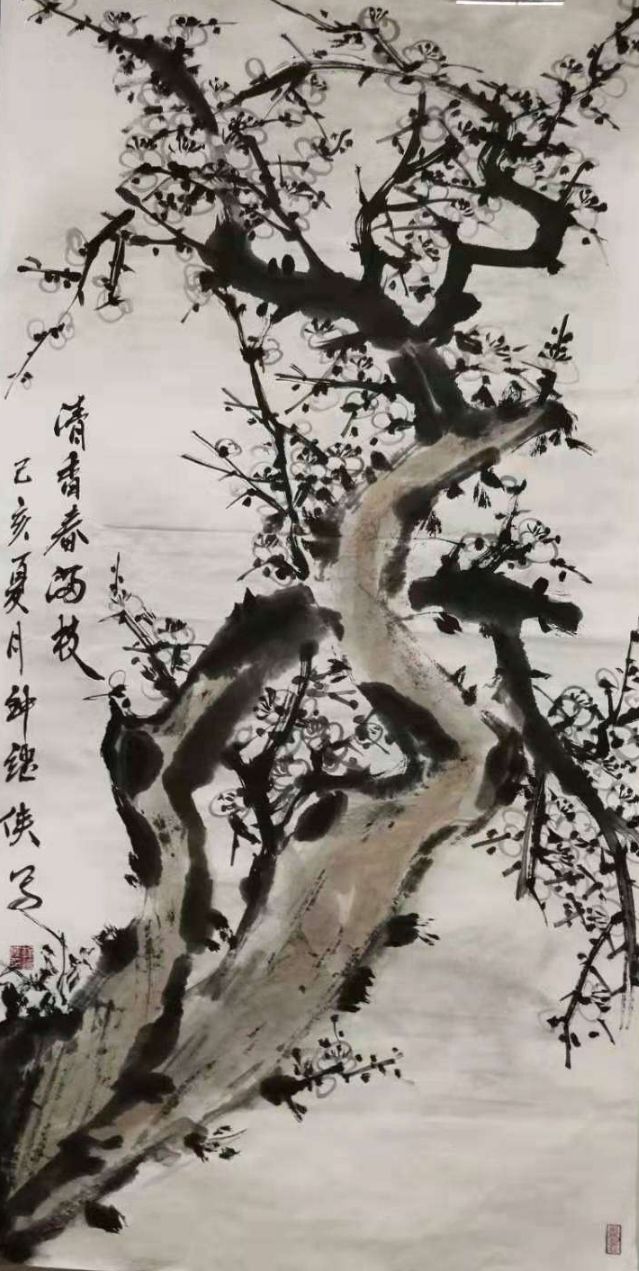 清香春满枝
己亥夏月钟继侠写